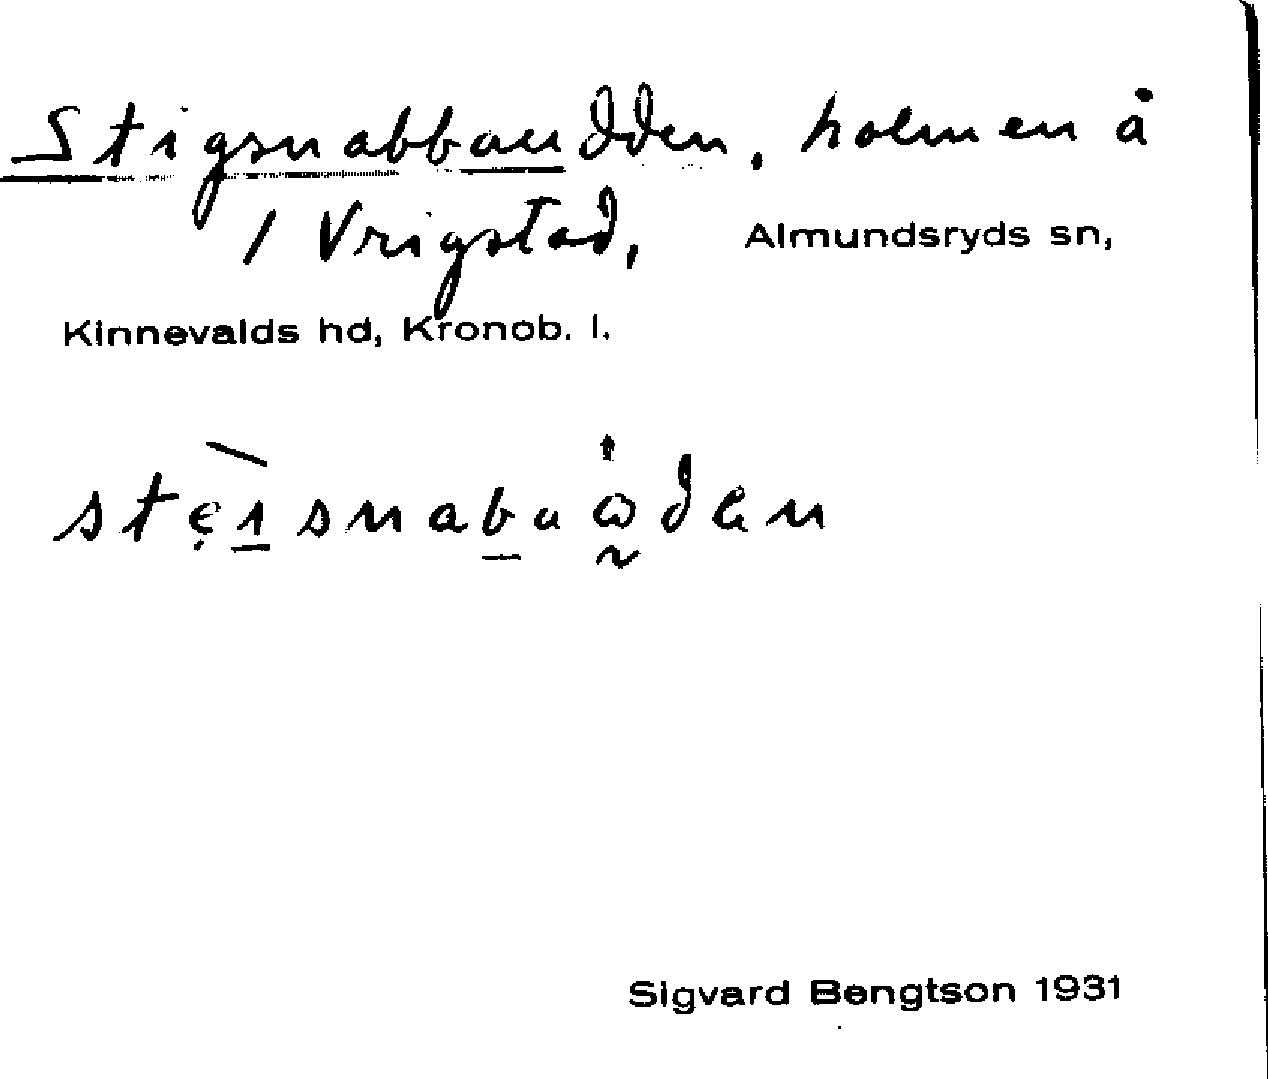 Stigsnabbaudden, holmen å
1 Vrigstad, Almundsryds sn,
Kinnevalds hd, Kronob. l.
Sigvard Bengtson 1931